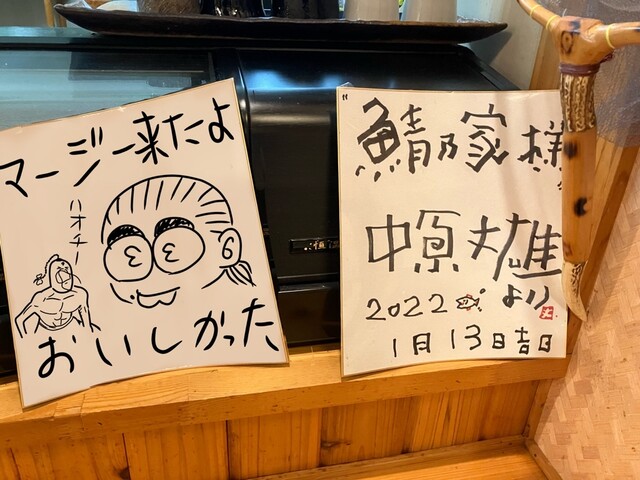 マージー来たよ
ハオチー
おいしかった
鯖乃家様
中原丈雄
2022 より
1月13日吉日